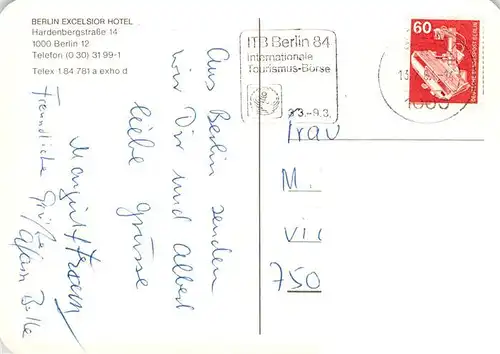 BERLIN EXCELSIOR HOTEL
Hardenbergstraße 14
1000 Berlin 12
Telefon (0 30) 31 99-1
Telex 1 84 781 a exho d
ITB Berlin 84
Internationale
Tourismus-Börse
3.3.–9.3.
60
DEUTSCHE BUNDESPOST BERLIN
1000
Aus Berlin senden
wir Dir und Albert
liebe Grüsse
Margit
Freundliche Grüße
Frau
M.
Vic
750